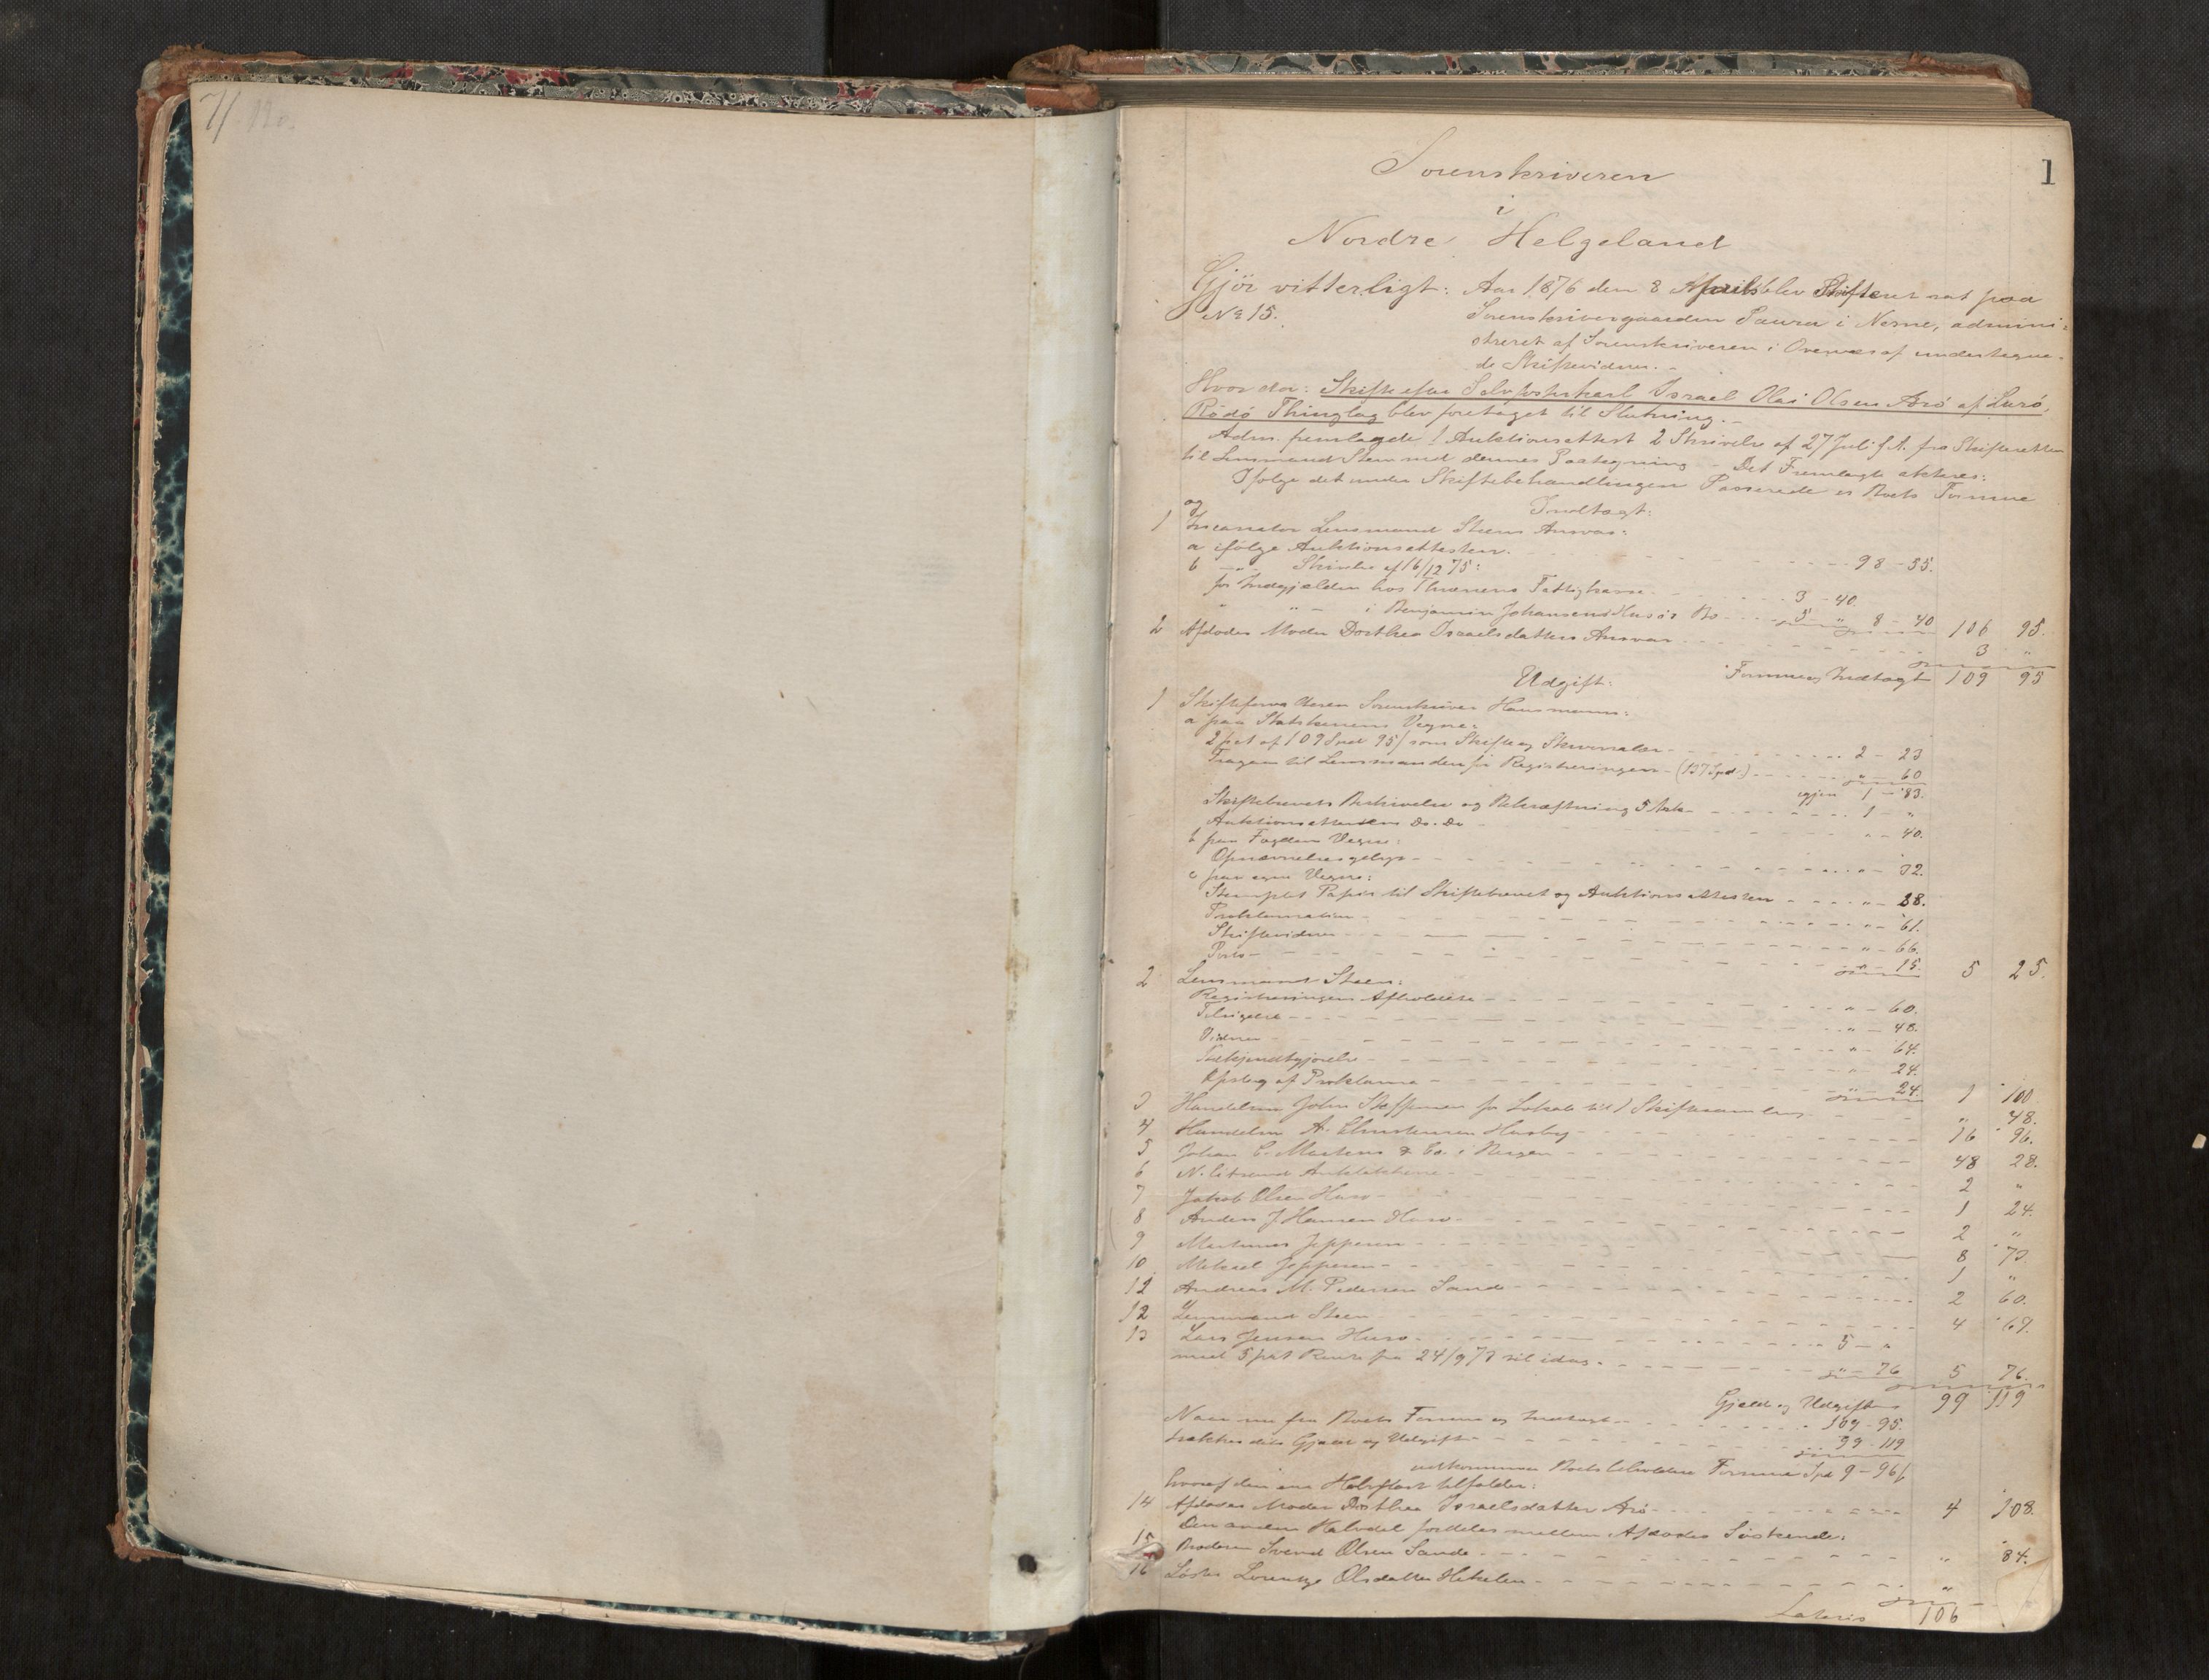 1
Sorenskriveren
i
Nordre Helgeland
Gjör vitterligt: Aar 1876 den 8 April blev Skifteret sat paa
No 15. Sorenskrivergaarden Saura i Nesne, admini-
streret af Sorenskriveren i Overvær af undertegne-
de Skiftevidner. -
Hvor da: Skifte efter Selvfosterkarl Israel Olai Olsen Arö af Lurö,
Rödö Thinglag blev foretaget til Slutning. -
Adm. fremlagde 1 Auktionsattest 2 Skrivelse af 27 Juli f. A. fra Skifteretten
til Lensmand Steen med dennes Paategning - Det Fremlagte akteres:
Ifölge det under Skiftebehandlingen Passerede er Boets Formue
og Indtægt:
1 Incassator Lensmand Steens Ansvar:
a ifölge Auktionsattesten. 98 - 55.
b -"- Skrivelse af 16/12 75:
for Indgjælden hos Thrænens Fattigkasse 3 - 40.
" " - i Benjamin Johansens Husös Bo 5 " 8 - 40 106 95.
2 Afdödes Moder Dorthea Israelsdatters Ansvar 3 "
Formue og Indtægt 109 95
Udgift:
1 Skifteforvalteren Sorenskriver Hansmann:
a paa Statskassens Vegne:
2 pct af 109 Spd 95 / som Skifte og Skriversalær 2 - 23
Fragaar til Lensmanden for Registreringen (137 Spd.) " - 60
igjen 1 - 83.
Skiftebrevets Beskrivelse og Bekræftning 5 Ark 1 - "
Auktionsattestens Do. Do " - 40.
b paa Fogdens Vegne:
Opnævnelsesgebyr " - 32.
c paa egne Vegne:
Stemplet Papir til Skiftebrevet og Auktionsattesten " - 28.
Proklamation " - 61.
Skiftevidner " - 66.
Porto " - 15. 5 25.
2 Lensmand Steen:
Registreringens Afholdelse " - 60.
Tilsigelse " - 48.
Vidner " - 64.
Bekjendtgjörelse " 24.
Opslag af Proklama " 24. 1 100
3 Handelsm John Steffensen for Lokale til 1 Skiftesamling " 48.
4 Handelsm A. Christensen Husby 16 96.
5 Johan C. Martens & Co. i Bergen 48 28.
6 N. 2 "
7 Jakob Olsen Husö 1 24.
8 Anders J. Hansen Husö 2 "
9 Martinus Jeppesen 8 73.
10 Mikael Jeppesen 1 "
12 Andreas M. Pedersen Sande 2 60.
12 Lensmand Steen 4 69.
13 Lars Jensen Husö 5 - "
med 5 pct Rente fra 24/9 73 til idag " - 76 5 76.
Gjæld og Udgifter 99 119
Naar nu fra Boets Formue og Indtægt 109 - 95.
trækkes dets Gjæld og Udgift 99 119
udkommer Boets beholdne Formue Spd 9 - 96 /
hvoraf den ene Halvpart tilfalder:
14 Afdödes Moder Dorthea Israelsdatter Arö 4 108.
Den anden Halvdel fordeles mellem Afdödes Söskende:
15 Broderen Svend Olsen Sande " 84.
16 Söster Lorentze Olsdatter "
Lateris 106